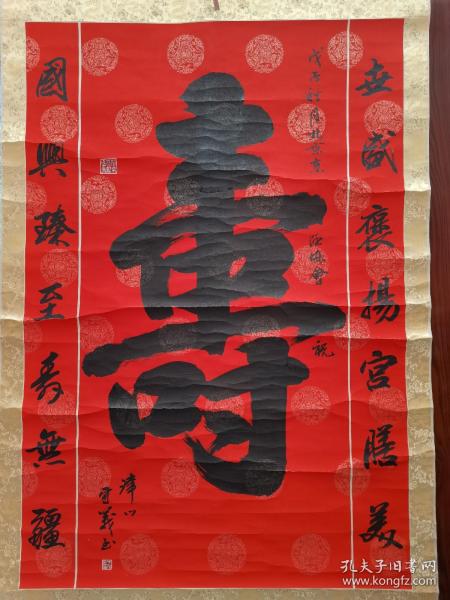 世盛褒揚宮膳美
戊子秋月於北京
祝
壽
國興臻至壽無疆
津門
守義書
孔夫子旧书网
www.kongfz.com